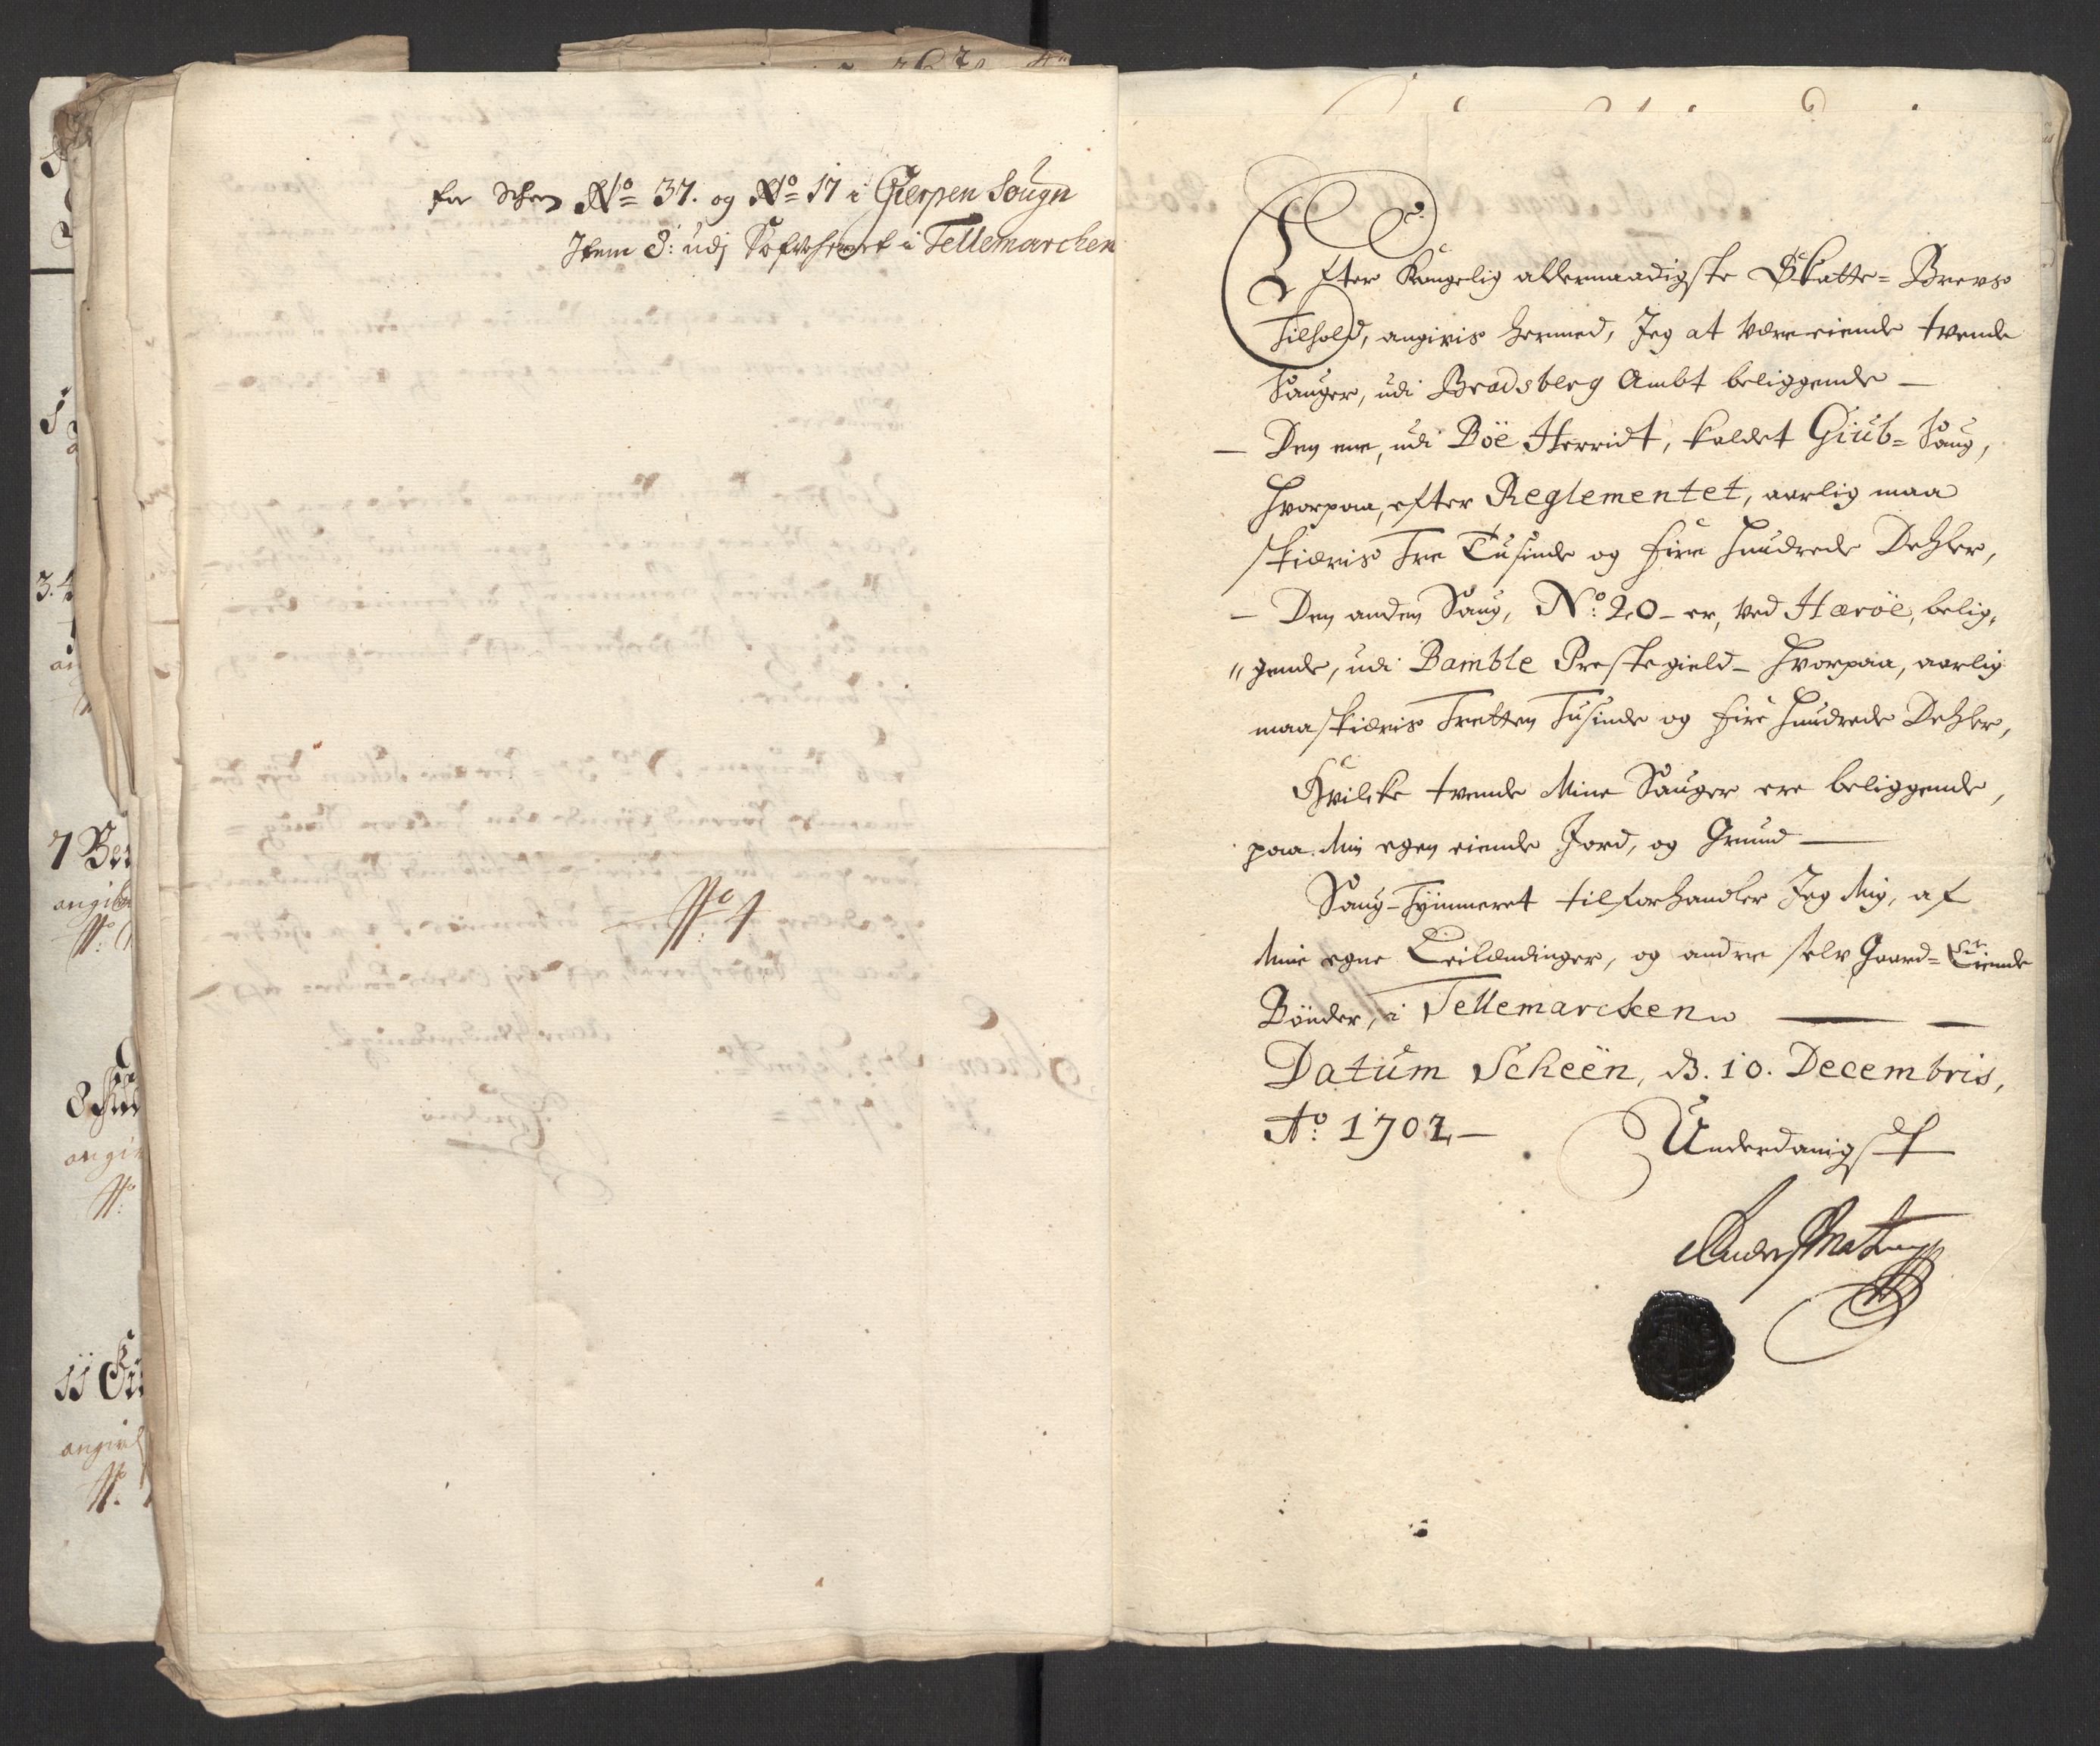 for Scheen No 37. og No 17 i Gierpen Sougn
Item 8: udj Hofvesognet i Tellemarcken
No 4
Efter Kongelig allernaadigste Skatte=Brevs
Tilhold, angivis hermed, Jeg at være eiende tvende
Sauger, udi Bradsberg Ambt beliggende —
— Den ene, udi Böe Herridt, kaldet Giüb=Saug,
Hvorpaa, efter Reglementet, aarlig maa
skiæris Tre Tusinde og fire hundrede Dehler,
— Den anden Saug, No: 20 – er, ved Hærøe, belig,
" gende, udi Bamble Prestegield – Hvorpaa, aarlig
maa skiæris Tretten Tusinde og fire hundrede Dehler,
Hvilcke tvende Mine Sauger ere beliggende,
paa Min egen eiende Jord, og Grund —
Saug-Tÿmmeret tilforhandler Jeg Mig, af
Mine egne Leilændinger, og andre selv Gaard=Eiende
Bönder, i Tellemarcken —
Datum Scheën, d. 10. Decembris,
Ao: 1702 —
Underdanigst
7 Ber
angib
8
angi
11
angivel
3.4